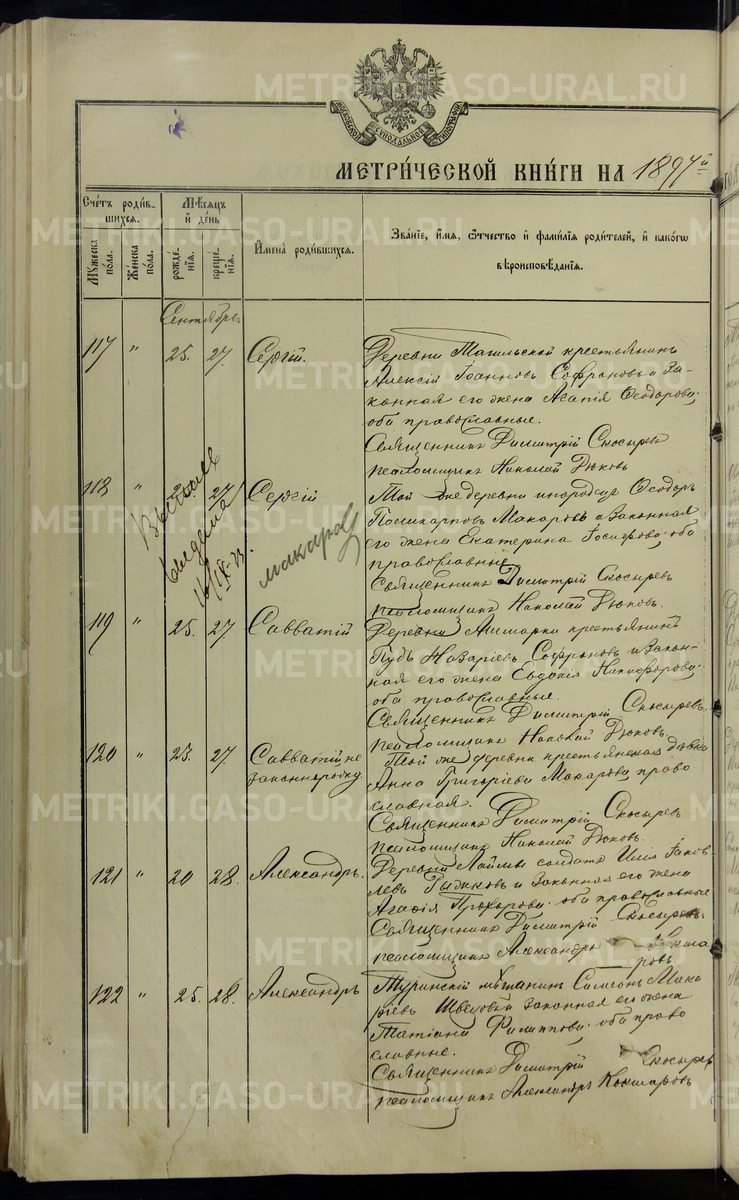 МОСКОВСКОЙ СУНОДАЛЬНОЙ ТИПОГРАФІИ
МЕТРИ́ЧЕСКОЙ КНИ́ГИ НА 1897й
Сче́тъ роди́вшихся.
Му́жеска по́ла.
Же́нска по́ла.
Мѣ́сяцъ и де́нь
рожде́нїя.
креще́нїя.
Имена̀ роди́вшихся.
Зва́нїе, и́мя, ѻ́тчество и фами́лїя роди́телей, и како́гѡ
вѣроисповѣ́данїя.
Сентябрь.
117 " 25. 27. Сергій.
Деревни Тагильской крестьянинъ
Алексій Іоанновъ Софроновъ и за-
конная его жена Агапія Ѳеодорова.
оба православные.
Священникъ Димитрій Скосыревъ
псаломщикъ Николай Дюковъ
118 " 27 Сергій
Той же деревни инородецъ Ѳеодоръ
Поликарповъ Макаровъ и законная
его жена Екатерина Іосифова. оба
православные
Священникъ Димитрій Скосыревъ
псаломщикъ Николай Дюковъ.
IX-23.
макаров
119 " 25. 27. Савватій
Деревни крестьянинъ
Назаріевъ Софроновъ и закон-
ная его жена Евдокія Никифорова.
оба православные.
Священникъ Димитрій Скосыревъ.
псаломщикъ Николай Дюковъ
120 " 23. 27. Савватій не
законнорожд.
Той же деревни крестьянская дѣвка
Анна Григоріева Макарова право
славная.
Священникъ Димитрій Скосыревъ
псаломщикъ Николай Дюковъ.
121 " 20 28. Александръ.
Деревни солдатъ Илія Іаков
левъ Рыжковъ и законная его жена
Агафія Прохорова. оба православные
Священникъ Димитрій Скосыревъ.
псаломщикъ Александръ Кокша
ровъ
122 " 25. 28. Александръ
Туринскій мѣщанинъ Симеонъ Мака
ріевъ Шведовъ и законная его жена
Татіана Филиппова. оба право
славные.
Священникъ Димитрій Скосыревъ
псаломщикъ Александръ Кокшаровъ
METRIKI.GASO-URAL.RU